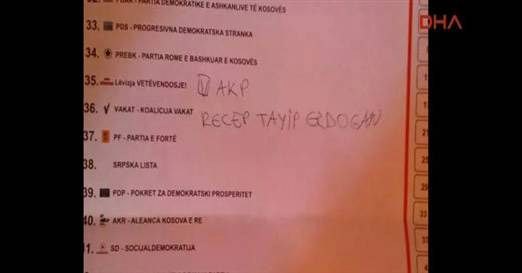 DHA
32. PDAK - PARTIA DEMOKRATIKE E ASHKANLIVE TË KOSOVËS
33. PDS - PROGRESIVNA DEMOKRATSKA STRANKA
34. PREBK - PARTIA ROME E BASHKUAR E KOSOVËS
35. Lëvizja VETËVENDOSJE!
AKP
36. VAKAT - KOALICIJA VAKAT
RECEP TAYIP ERDOGAN
37. PF - PARTIA E FORTË
38. SRPSKA LISTA
39. PDP - POKRET ZA DEMOKRATSKI PROSPERITET
40. AKR - ALEANCA KOSOVA E RE
41. SD - SOCIJALDEMOKRATIJA